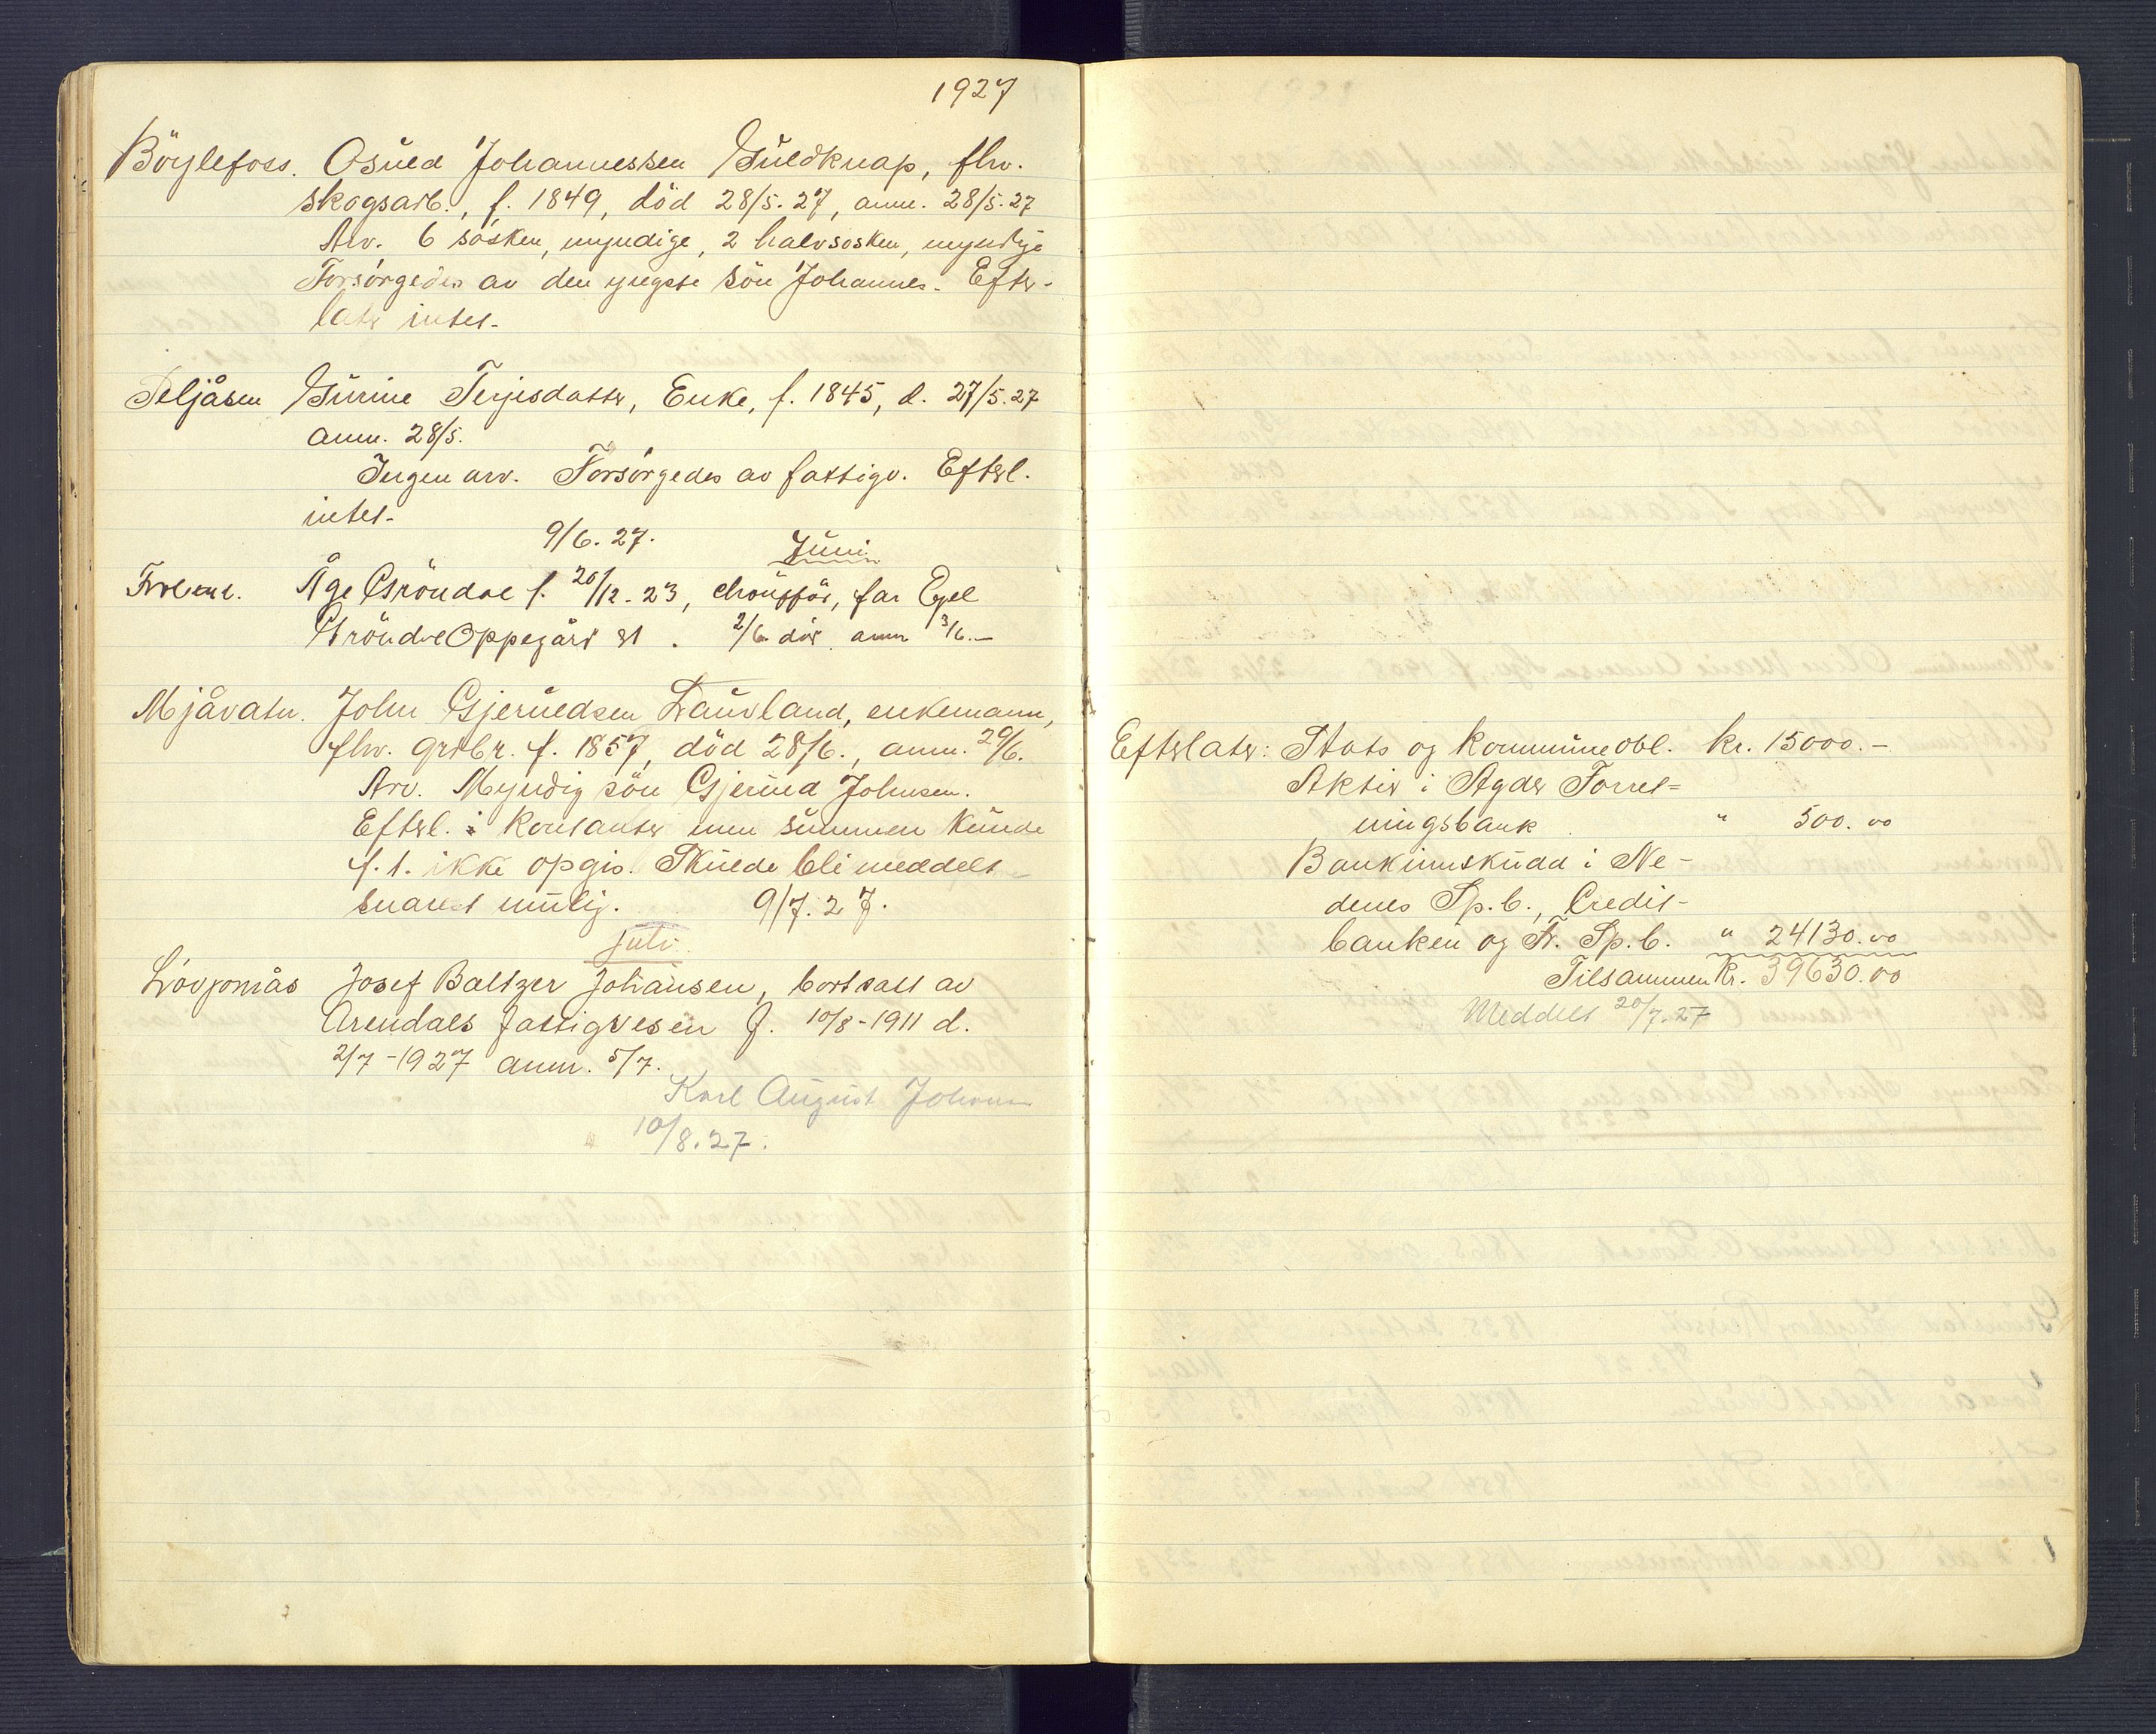 1927
Böylefoss. Osuld Johannessen Guldknap, fhv.
skogsarb., f. 1849, död 28/5. 27, anm. 28/5. 27
Arv. 6 søsken, myndige, 2 halvsøsken, myndige
Forsörgedes av den yngste sön Johannes. Efter-
later intet.
Seljåsen Gurine Terjesdatter, Enke, f. 1845, d. 27/5. 27
anm. 28/5.
Ingen arv. Forsörgedes av fattigv. Efterl.
intet.
9/6. 27.
Juni
Frolend. Åge Gröndal f. 20/12. 23, far Egel
Gröndal Oppegård st. 2/6 död anm 3/6.-
Mjåvatn. John Gjeruldsen Lauvland, enkemann,
fhv. grdbr. f. 1857, död 28/6., anm. 29/6.
Arv. Myndig sön Gjeruld Johnsen.
Efterl. i kontanter men summen kunde
f. t. ikke opgis. Skulde bli meddelt
snarest mulig. 9/7. 27.
juli
Lövjomås Josef Baltzer Johansen, bortsatt av
Arendals fattigvesen f. 10/8-1911 d.
2/7-1927 anm. 5/7.
Karl August Johann
10/8. 27.
Efterlater: Stats og kommuneobl. kr. 15000.-
Aktier i Agder Forret=
ningsbank " 500.00
Bankinnskudd i Ne-
denes Sp.b., Credit-
banken og Fr. Sp.b. " 24130.00
Tilsammen kr. 39630.00
Meddelt 20/7. 27